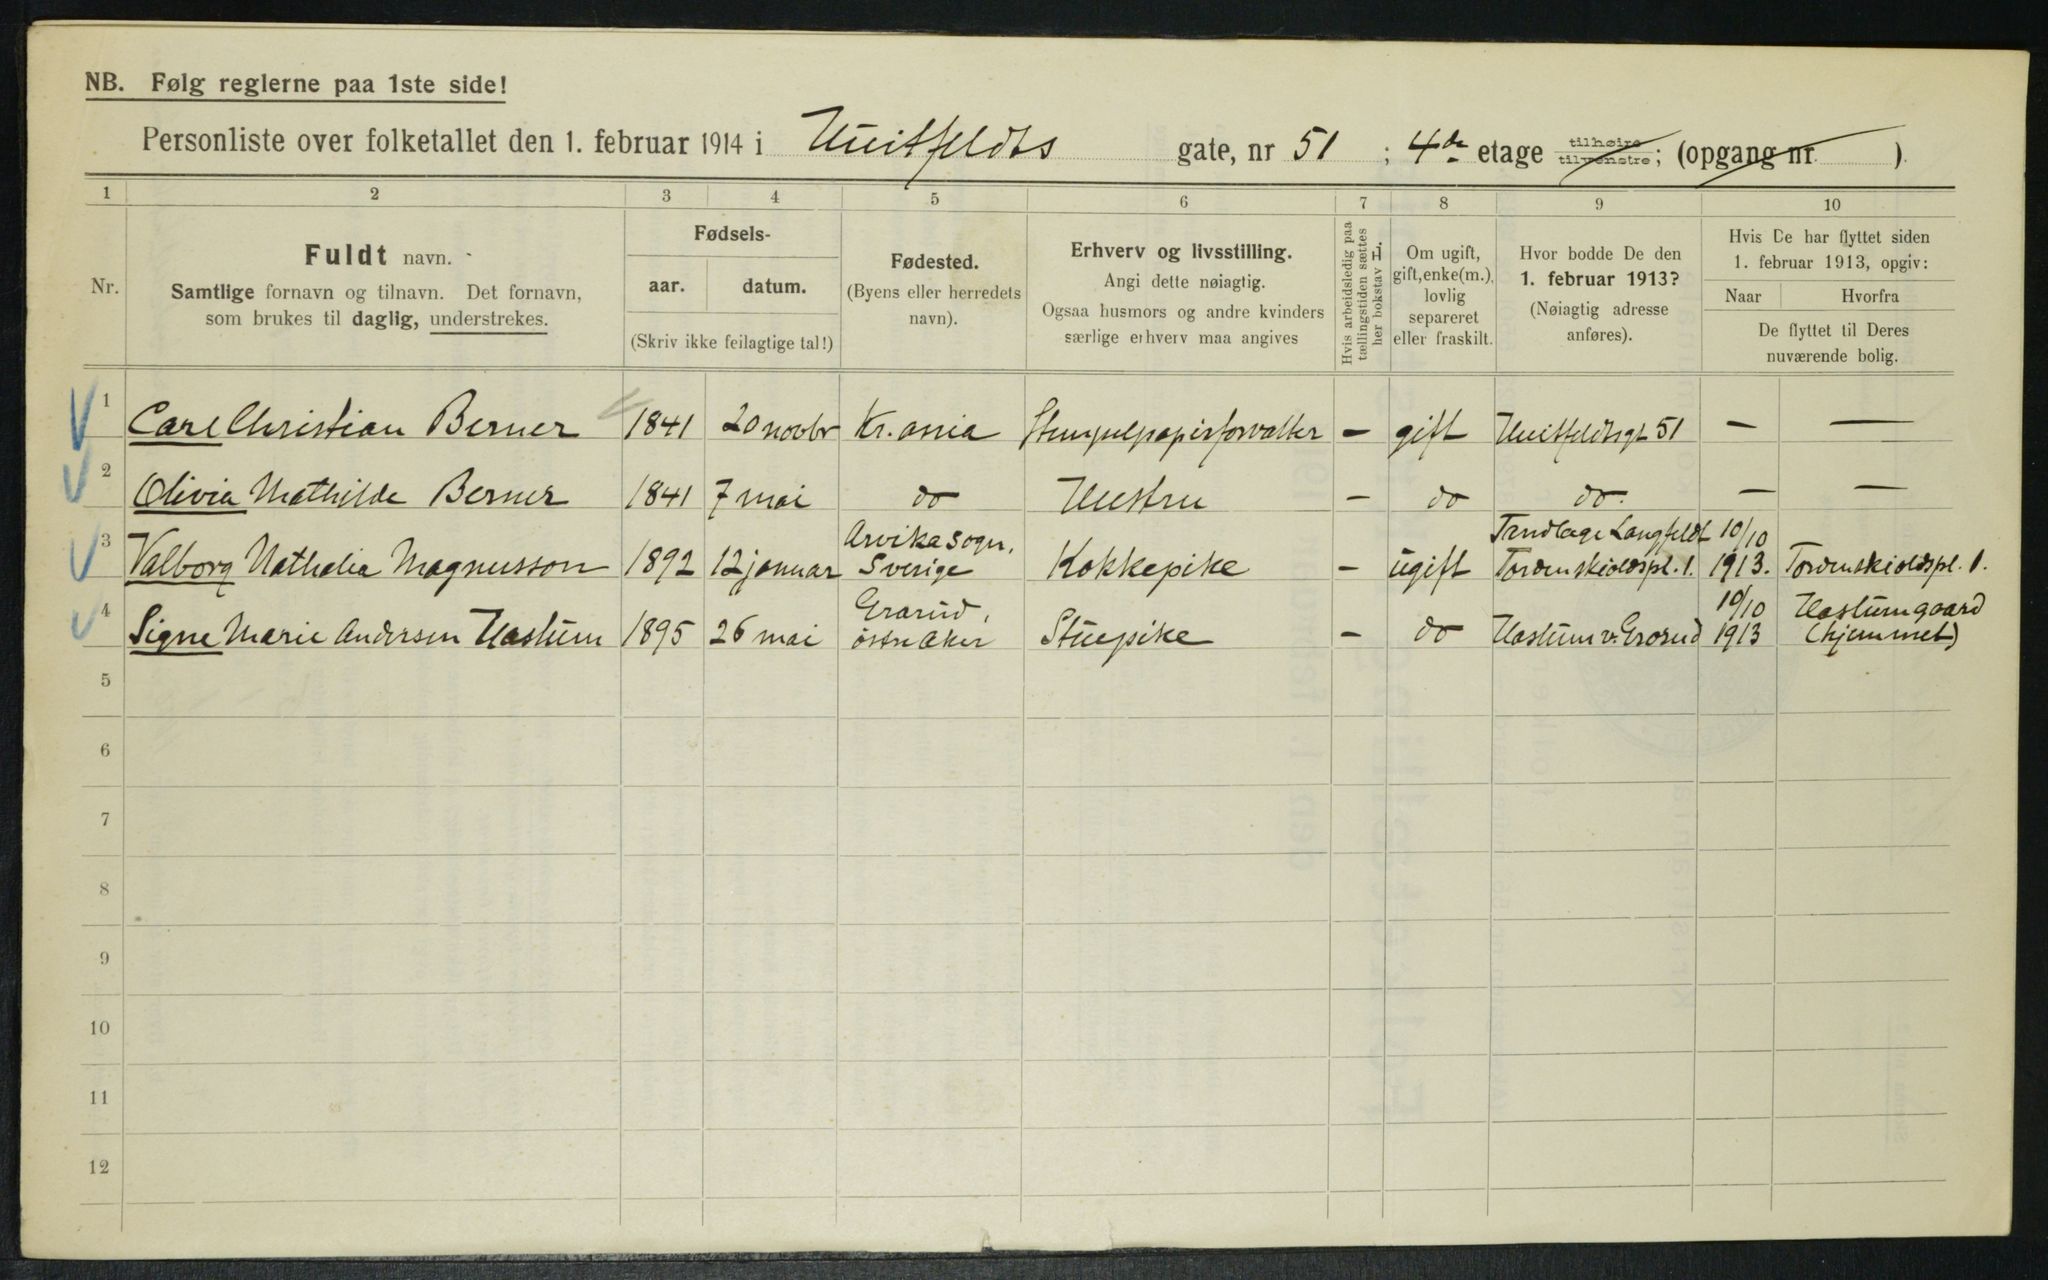 NB. Følg reglerne paa 1ste side!
Personliste over folketallet den 1. februar 1914 i Huitfeldts gate, nr 51 ; 4de etage tilhøire tilvenstre; (opgang nr ).
1 2 3 4 5 6 7 8 9 10
Nr.
Fuldt navn.
Samtlige fornavn og tilnavn. Det fornavn,
som brukes til daglig, understrekes.
Fødsels-
aar. datum.
(Skriv ikke feilagtige tal!)
Fødested.
(Byens eller herredets
navn).
Erhverv og livsstilling.
Angi dette nøiagtig.
Ogsaa husmors og andre kvinders
særlige erhverv maa angives
Hvis arbeidsledig paa
tællingstiden sættes
her bokstav L.
Om ugift,
gift, enke(m.),
lovlig
separeret
eller fraskilt.
Hvor bodde De den
1. februar 1913?
(Nøiagtig adresse
anføres).
Hvis De har flyttet siden
1. februar 1913, opgiv:
Naar Hvorfra
De flyttet til Deres
nuværende bolig.
1 Carl Christian Berner 1841 20 novbr Kr.ania Stempelpapirforvalter – gift Huitfeldtsgt 51 – –
2 Olivia Mathilde Berner 1841 7 mai do Hustru – do do. – –
3 Valborg Nathalia Magnusson 1892 12 januar Arvika sogn, Sverige Kokkepike – ugift Langfeldt Tordenskioldspl. 1. 10/10 1913. Tordenskioldspl. 1.
4 Signe Marie Andersen Haslum 1895 26 mai Grorud, østre Aker Stuepike – do Haslum v. Grorud 10/10 1913 Haslumgaard (hjemmet)
5
6
7
8
9
10
11
12